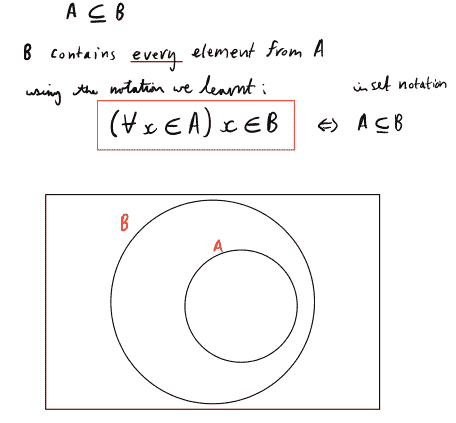 A ⊆ B
B contains every element from A
using the notation we learnt :
in set notation
(∀ x ∈ A) x ∈ B ⇔ A ⊆ B
B
A